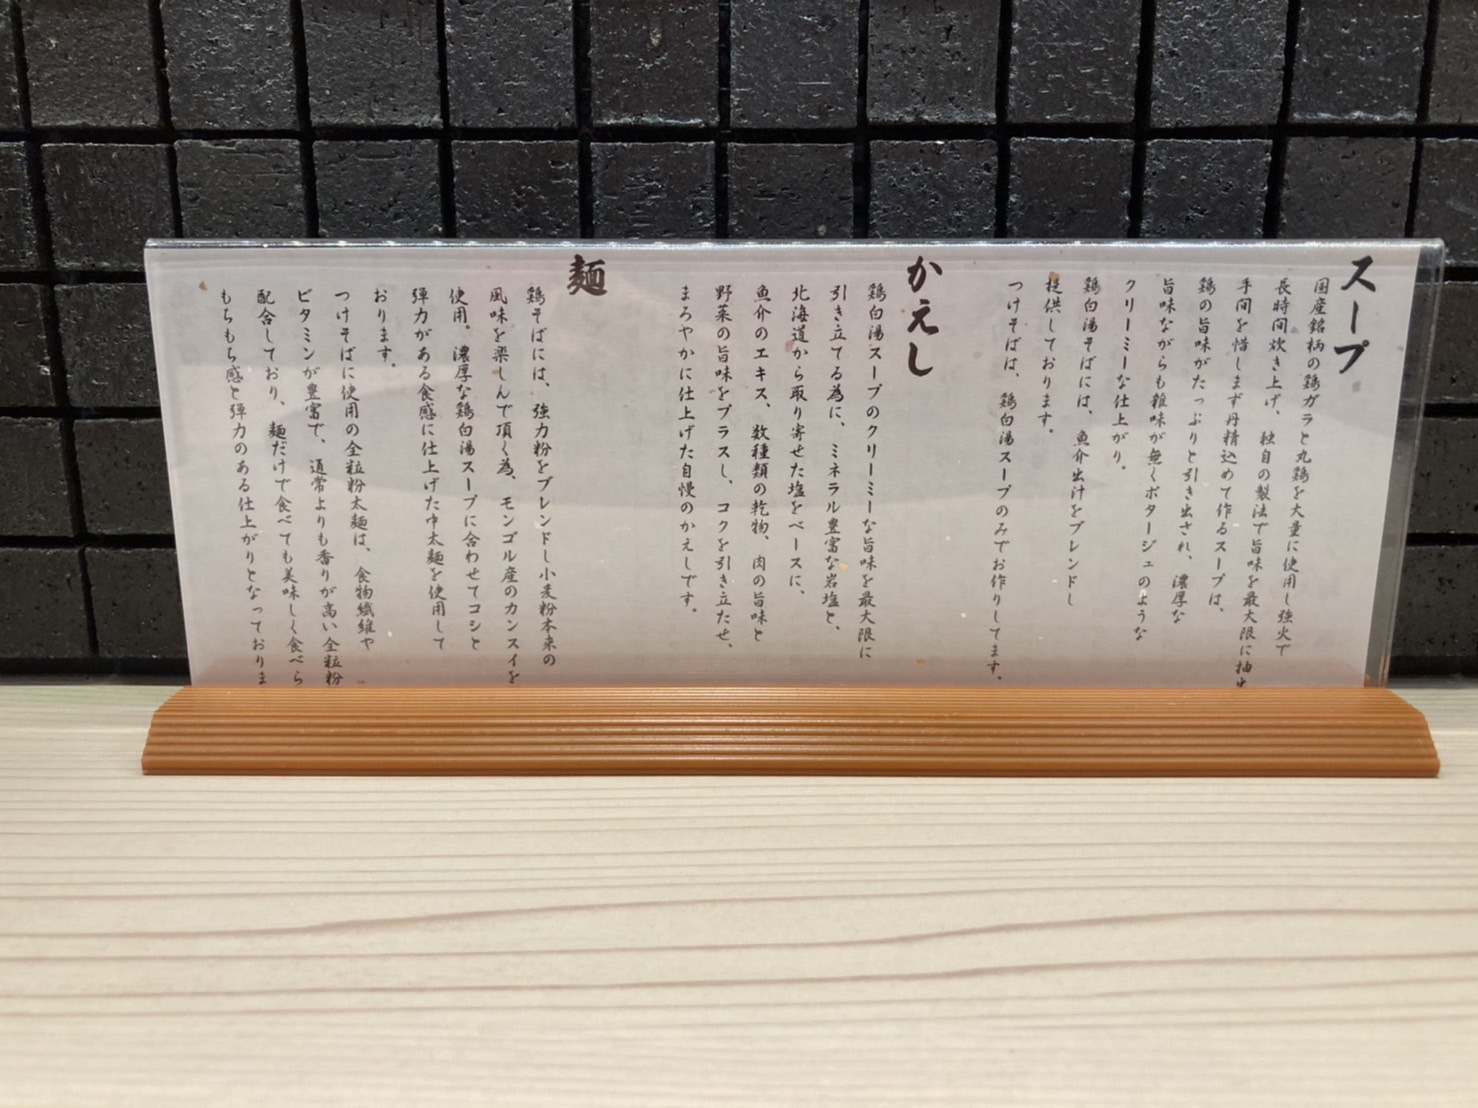 スープ
国産銘柄の鶏ガラと丸鶏を大量に使用し強火で
長時間炊き上げ、独自の製法で旨味を最大限に抽出
手間を惜しまず丹精込めて作るスープは、
鶏の旨味がたっぷりと引き出され、濃厚な
旨味ながらも雑味が無くポタージュのような
クリーミーな仕上がり。
鶏白湯そばには、魚介出汁をブレンドし
提供しております。
つけそばは、鶏白湯スープのみでお作りしてます。
かえし
鶏白湯スープのクリーミーな旨味を最大限に
引き立てる為に、ミネラル豊富な岩塩と、
北海道から取り寄せた塩をベースに、
魚介のエキス、数種類の乾物、肉の旨味と
野菜の旨味をプラスし、コクを引き立たせ、
まろやかに仕上げた自慢のかえしです。
麺
鶏そばには、強力粉をブレンドし小麦粉本来の
風味を楽しんで頂く為、モンゴル産のカンスイを
使用。濃厚な鶏白湯スープに合わせてコシと
弾力がある食感に仕上げた中太麺を使用して
おります。
つけそばに使用の全粒粉太麺は、食物繊維や
ビタミンが豊富で、通常よりも香りが高い全粒粉
配合しており、麺だけで食べても美味しく食べら
もちもち感と弾力のある仕上がりとなっておりま